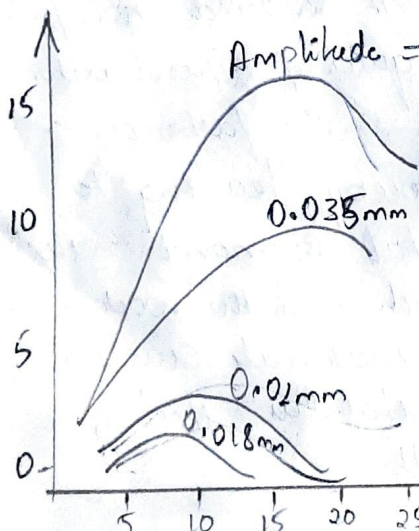 Amplitude =
15
10
0.035mm
5
0.02mm
0.018mm
0
5 10 15 20 25